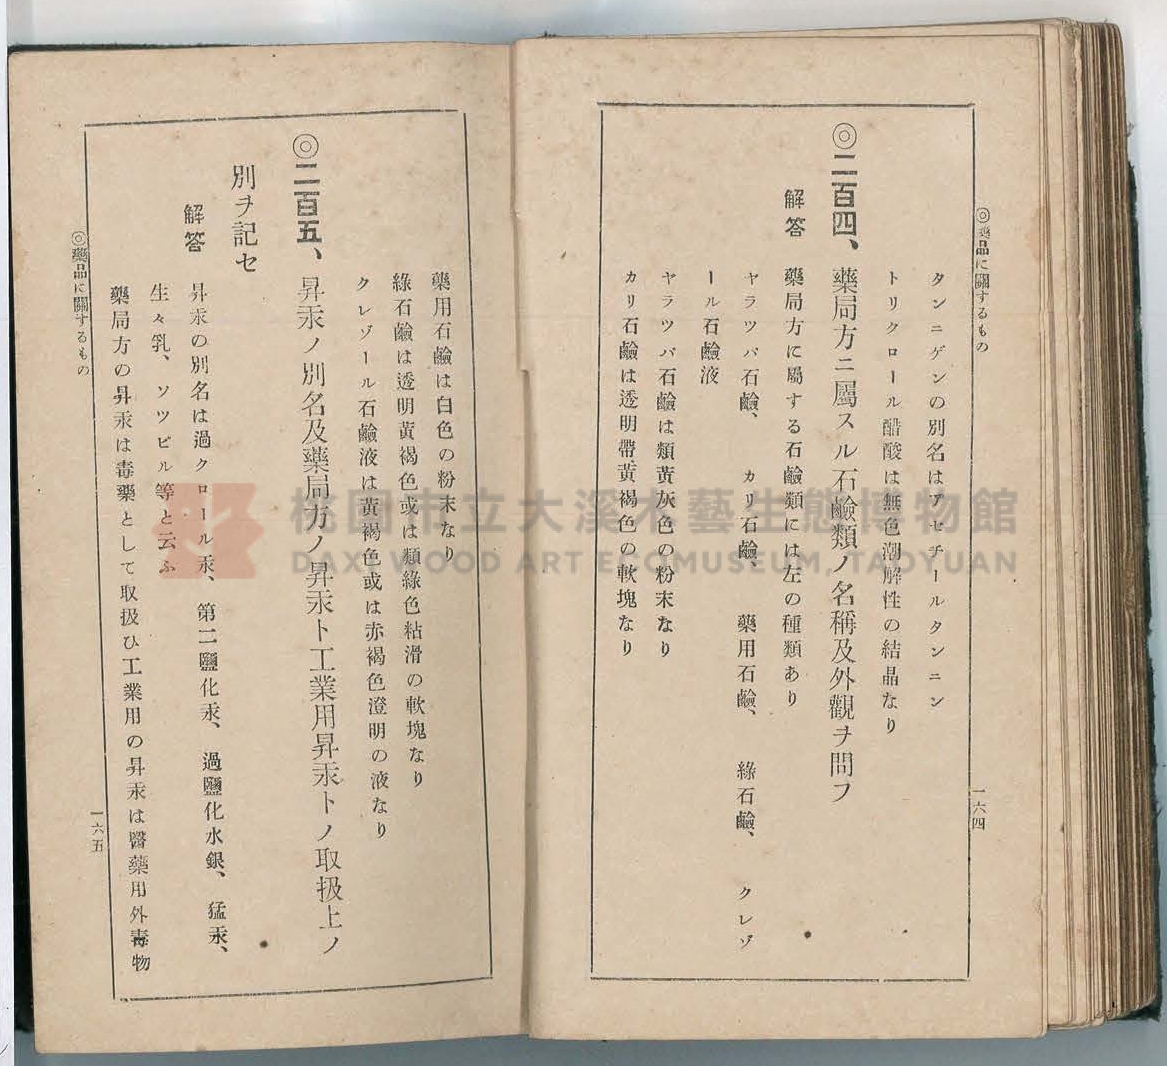 ◎藥品に關するもの
一六四
タンニゲンの別名はアセチールタンニン
トリクロール醋酸は無色潮解性の結晶なり
◎二百四、藥局方ニ屬スル石鹼類ノ名稱及外觀ヲ問フ
解答
藥局方に屬する石鹼類には左の種類あり
ヤラツパ石鹼、カリ石鹼、藥用石鹼、綠石鹼、クレゾ
ール石鹼液
ヤラツパ石鹼は類黃灰色の粉末なり
カリ石鹼は透明帶黃褐色の軟塊なり
藥用石鹼は白色の粉末なり
綠石鹼は透明黃褐色或は類綠色粘滑の軟塊なり
クレゾール石鹼液は黃褐色或は赤褐色澄明の液なり
◎二百五、昇汞ノ別名及藥局方ノ昇汞ト工業用昇汞トノ取扱上ノ
別ヲ記セ
解答
昇汞の別名は過クロール汞、第二鹽化汞、過鹽化水銀、猛汞、
生々乳、ソツビル等と云ふ
藥局方の昇汞は毒藥として取扱ひ工業用の昇汞は醫藥用外毒物
◎藥品に關するもの
一六五
桃園市立大溪木藝生態博物館
DAXI WOOD ART ECOMUSEUM, TAOYUAN